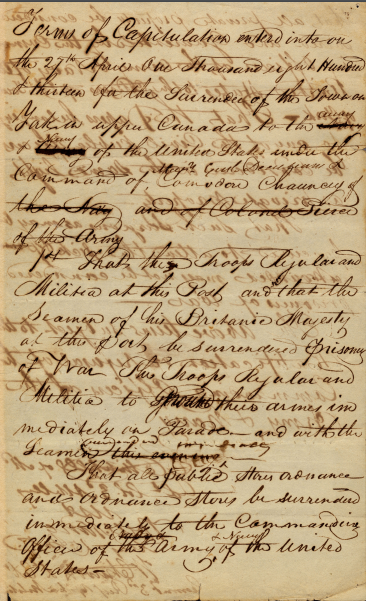 Terms of Capitulation entered into on
the 27th April One Thousand eight Hundred
& thirteen for the Surrender of the Town on
York in upper Canada to the army
& Navy of the United States under the
Majr Genl Dearborn &
Command of Comodore Chauncey of
the Navy and of Colonel Pierce
of the Army
1st That the Troops Regular and
Militia at this Post and that the
Seamen of his Britanic Majesty
at the Port be surrendered Prisoners
of War The Troops Regular and
Militia to ground their arms im
mediately on Parade and with the
Seamen this evening
That all public stores ordnance
and ordnance stores be surrendered
immediately to the Commanding
& Navy
Officer of the Army of the United
States—